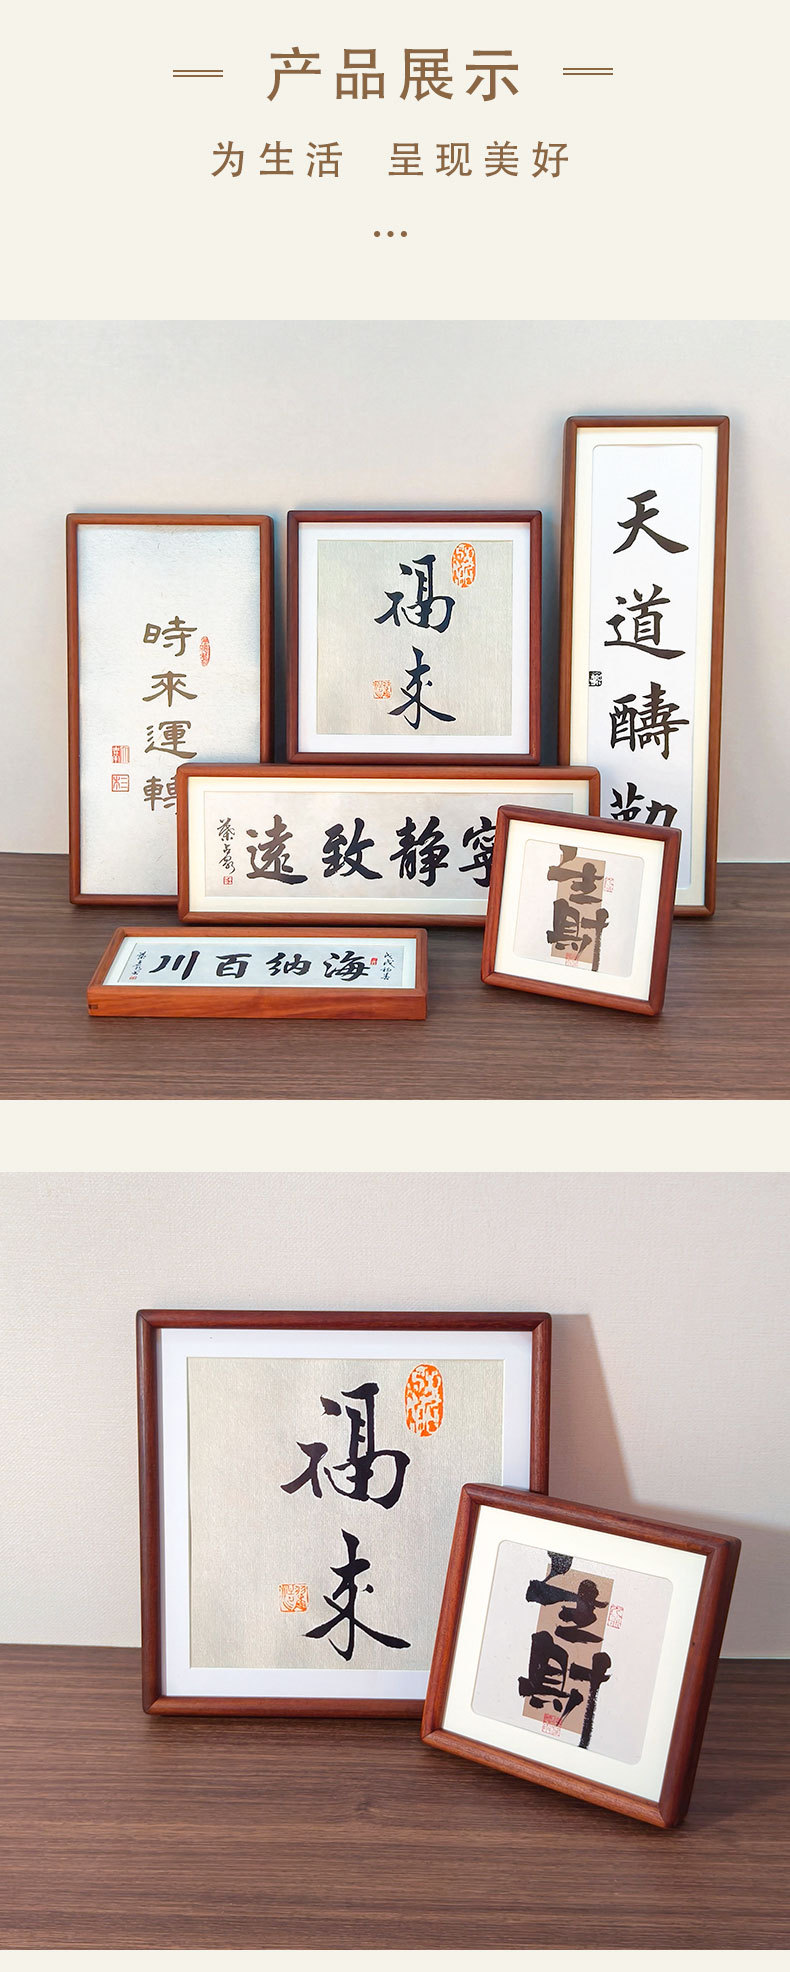 产品展示
为生活 呈现美好
...
時來運轉
福來
天道酬勤
遠致静寧
川百纳海
生財
福來
生財